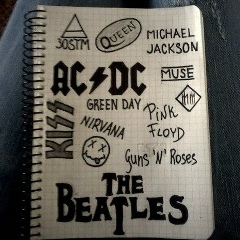 30STM
QUEEN
MICHAEL
JACKSON
AC⚡DC
MUSE
GREEN DAY
KISS
NIRVANA
PINK
FLOYD
GUNS 'N' ROSES
THE
BEATLES